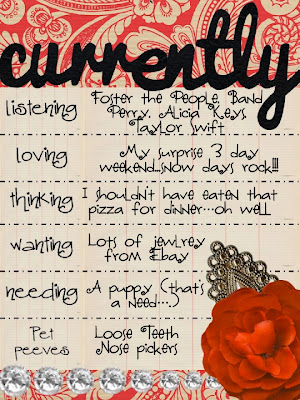 currently
listening
Foster the People, Band
Perry, Alicia Keys
Taylor Swift
loving
My surprise 3 day
weekend...snow days rock!!!
thinking
I shouldn't have eaten that
pizza for dinner...oh well
wanting
Lots of jewlrey
from Ebay
needing
A puppy (that's
a need...)
Pet
peeves
Loose Teeth
Nose pickers